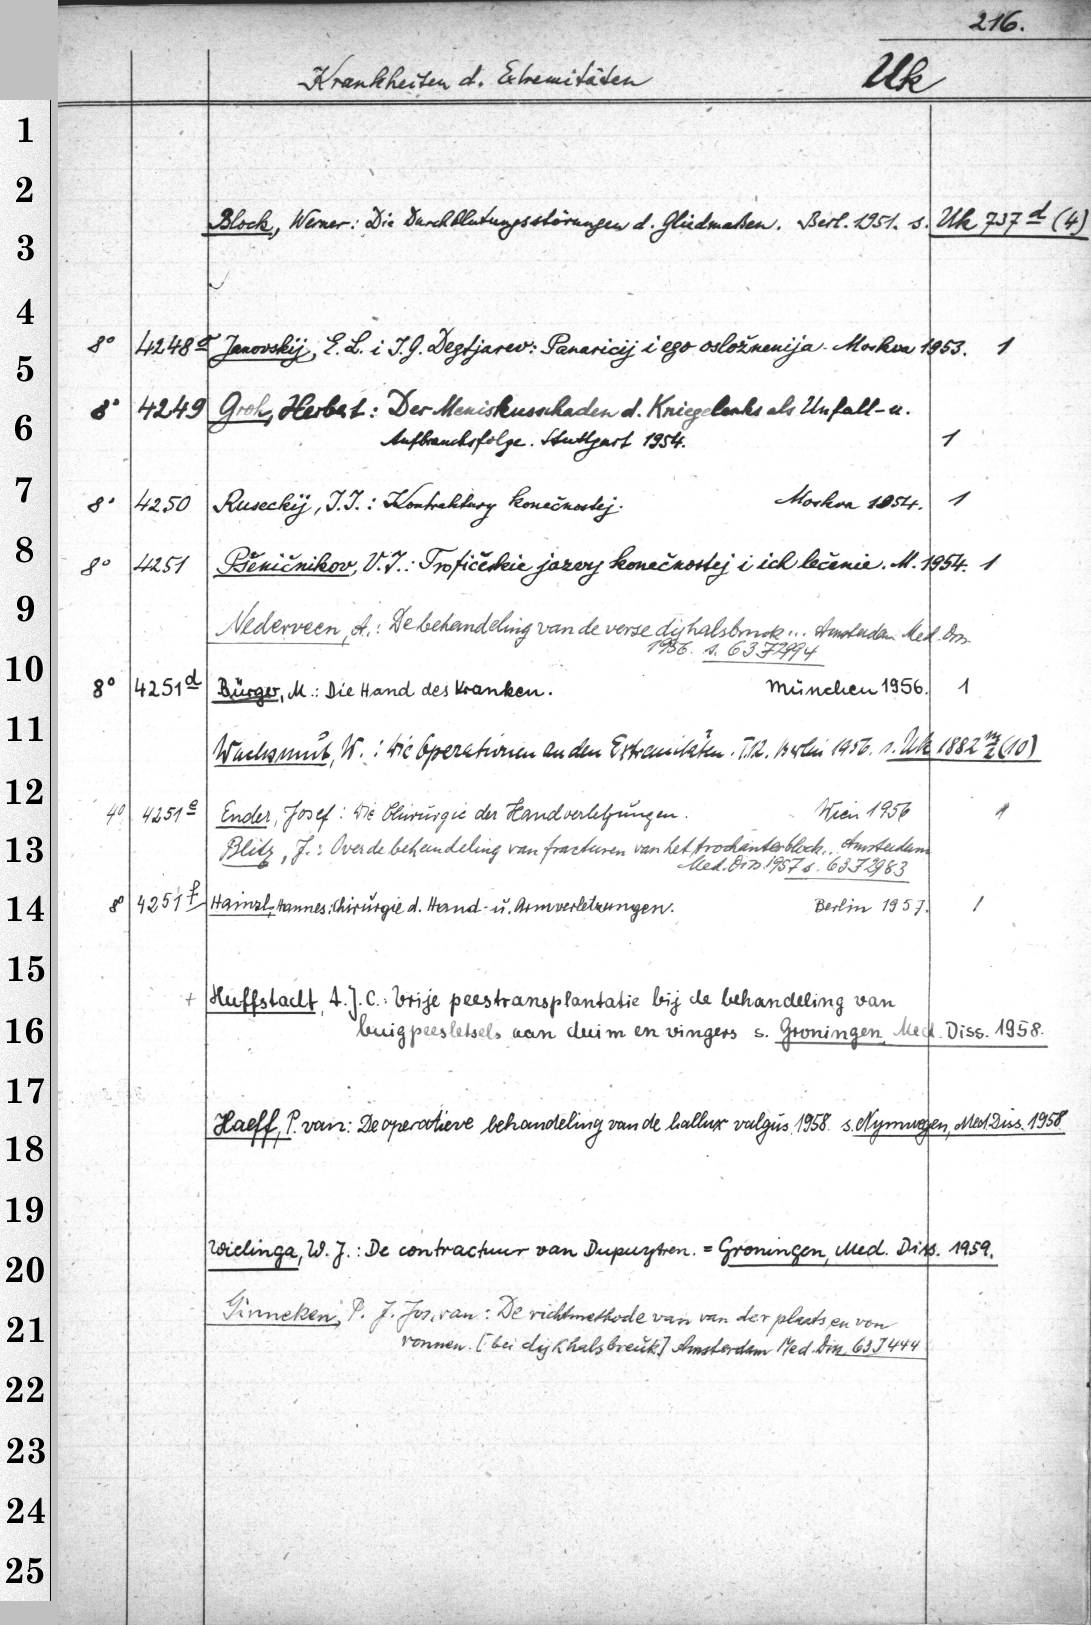 216.
Krankheiten d. Extremitäten Uk
1
2
Block, Werner: Die Durchblutungsstörungen d. Gliedmaßen. Berl. 1951. s. Uk 737 d (4)
3
4
8° 4248 a Janovskij, E. L. i I. G. Degtjarev: Panaricij i ego osložnenija. Moskva 1953. 1
5
8° 4249 Groh, Herbert: Der Meniskusschaden d. Kniegelenks als Unfall- u.
6
Aufbrauchsfolge. Stuttgart 1954. 1
7
8° 4250 Ruseckij, I. I.: Kontraktury konečnostej. Moskva 1954. 1
8
8° 4251 Pšeničnikov, V. I.: Trofičeskie jazvy konečnostej i ich lečenie. M. 1954. 1
9
Nederveen, A.: De behandeling van de verse dijhalsbreuk... Amsterdam Med. Diss
1956. s. 63 J 2994
10
8° 4251 d Bürger, M.: Die Hand des Kranken. München 1956. 1
11
Wachsmut, W.: Die Operationen an den Extremitäten. T. 2. Berlin 1956. s. Uk 1882 m/2 (10)
12
4° 4251 e Ender, Josef: Die Chirurgie der Handverletzungen. Wien 1956 1
13
Blitz, J.: Over de behandeling van fracturen van het trochanterblock.. Amsterdam
Med. Diss 1957 s. 63 J 2983
14
8° 4251 f Hainzl, Hannes: Chirurgie d. Hand- u. Armverletzungen. Berlin 1957. 1
15
+ Huffstadt, A. J. C.: Vrije peestransplantatie bij de behandeling van
16
buigpeesletsels aan duim en vingers s. Groningen, Med. Diss. 1958.
17
Haeff, P. van: De operatieve behandeling van de hallux valgus. 1958. s. Nymwegen, Med Diss. 1958
18
19
Wielinga, W. J.: De contractuur van Dupuytren. = Groningen, Med. Diss. 1959.
20
Ginneken, P. J. Jos. van: De richtmethode van van der plaats en von
21
ronnen. [bei dijkhalsbreuk] Amsterdam Med. Diss. 63 J 444
22
23
24
25